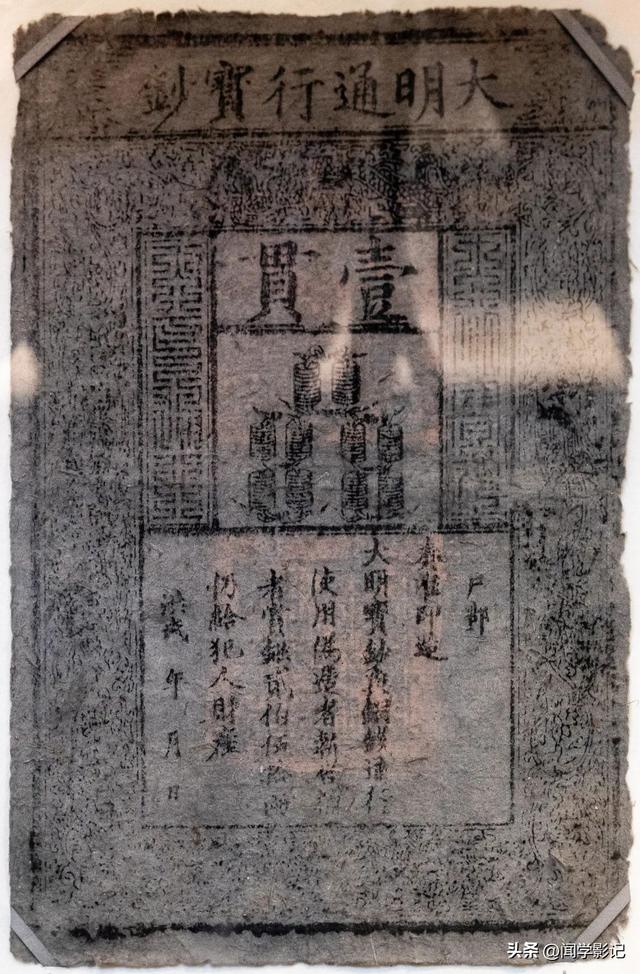 大明通行寶鈔
壹貫
户部
奏准印造
大明寶鈔與銅錢通行
使用偽造者斬告捕
者賞銀貳伯伍拾兩
仍給犯人財產
洪武 年 月 日
头条 @闻学影记